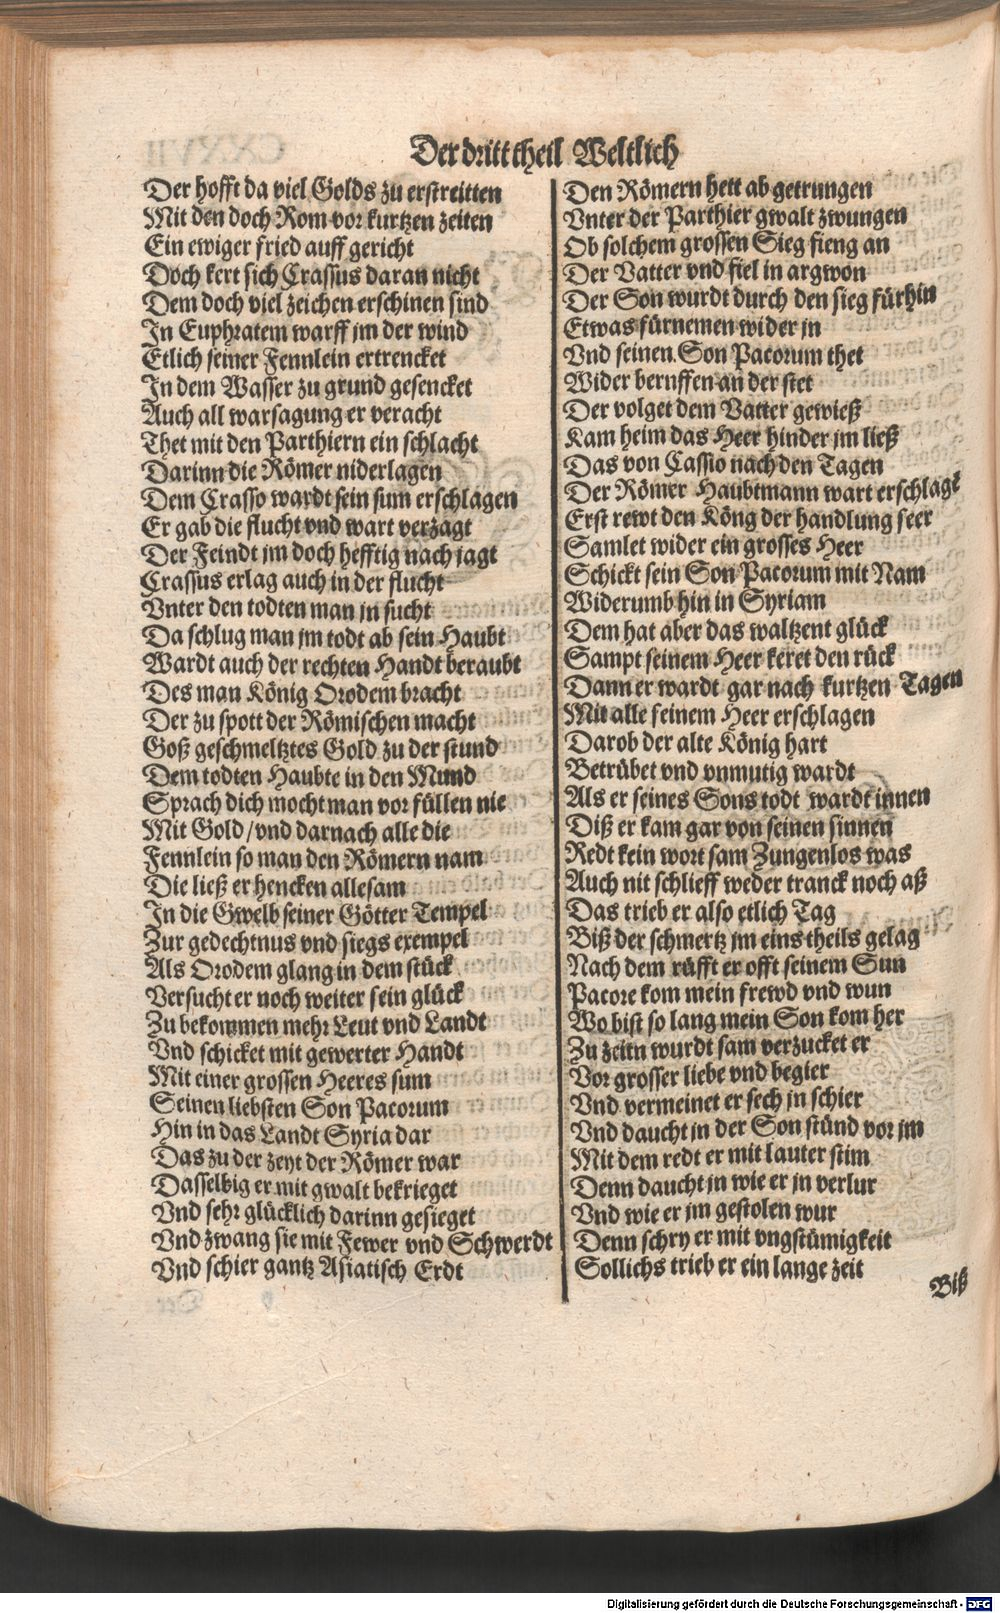 Der dritt theil Weltlich
Der hofft da viel Golds zu erstreitten
Mit den doch Rom vor kurtzen zeiten
Ein ewiger fried auff gericht
Doch kert sich Crassus daran nicht
Dem doch viel zeichen erschinen sind
In Euphratem warff jm der wind
Etlich seiner Fennlein ertrencket
In dem Wasser zu grund gesencket
Auch all warsagung er veracht
Thet mit den Parthiern ein schlacht
Darinn die Römer niderlagen
Dem Crasso wardt sein sun erschlagen
Er gab die flucht vnd wart verzagt
Der Feindt jm doch hefftig nach jagt
Crassus erlag auch in der flucht
Vnter den todten man jn sucht
Da schlug man jm todt ab sein Haubt
Wardt auch der rechten Handt beraubt
Des man König Orodem bracht
Der zu spott der Römischen macht
Goß geschmeltztes Gold zu der stund
Dem todten Haubte in den Mund
Sprach dich mocht man vor füllen nie
Mit Gold / vnd darnach alle die
Fennlein so man den Römern nam
Die ließ er hencken allesam
In die Gwelb seiner Götter Tempel
Zur gedechtnus vnd siegs exempel
Als Orodem glang in dem stück
Versucht er noch weiter sein glück
Zu bekommen mehr Leut vnd Landt
Vnd schicket mit gewerter Handt
Mit einer grossen Heeres sum
Seinen liebsten Son Pacorum
Hin in das Landt Syria dar
Das zu der zeyt der Römer war
Dasselbig er mit gwalt bekrieget
Vnd sehr glücklich darinn gesieget
Vnd zwang sie mit Fewer vnd Schwerdt
Vnd schier gantz Asiatisch Erdt
Den Römern hett ab getrungen
Vnter der Parthier gwalt zwungen
Ob solchem grossen Sieg fieng an
Der Vatter vnd fiel in argwon
Der Son wurdt durch den sieg fürhin
Etwas fürnemen wider jn
Vnd seinen Son Pacorum thet
Wider beruffen an der stet
Der volget dem Vatter gewieß
Kam heim das Heer hinder jm ließ
Das von Cassio nach den Tagen
Der Römer Haubtmann wart erschlagē
Erst rewt den Köng der handlung seer
Samlet wider ein grosses Heer
Schickt sein Son Pacorum mit Nam
Widerumb hin in Syriam
Dem hat aber das waltzent glück
Sampt seinem Heer keret den rück
Dann er wardt gar nach kurtzen Tagen
Mit alle seinem Heer erschlagen
Darob der alte König hart
Betrübet vnd vnmutig wardt
Als er seines Sons todt wardt innen
Diß er kam gar von seinen sinnen
Redt kein wort sam Zungenlos was
Auch nit schlieff weder tranck noch aß
Das trieb er also etlich Tag
Biß der schmertz jm eins theils gelag
Nach dem rüfft er offt seinem Sun
Pacore kom mein frewd vnd wun
Wo bist so lang mein Son kom her
Zu zeitn wurdt sam verzucket er
Vor grosser liebe vnd begier
Vnd vermeinet er sech jn schier
Vnd daucht jn der Son stünd vor jm
Mit dem redt er mit lauter stim
Denn daucht jn wie er jn verlur
Vnd wie er jm gestolen wur
Denn schry er mit vngstümigkeit
Sollichs trieb er ein lange zeit
Biß
Digitalisierung gefördert durch die Deutsche Forschungsgemeinschaft - DFG